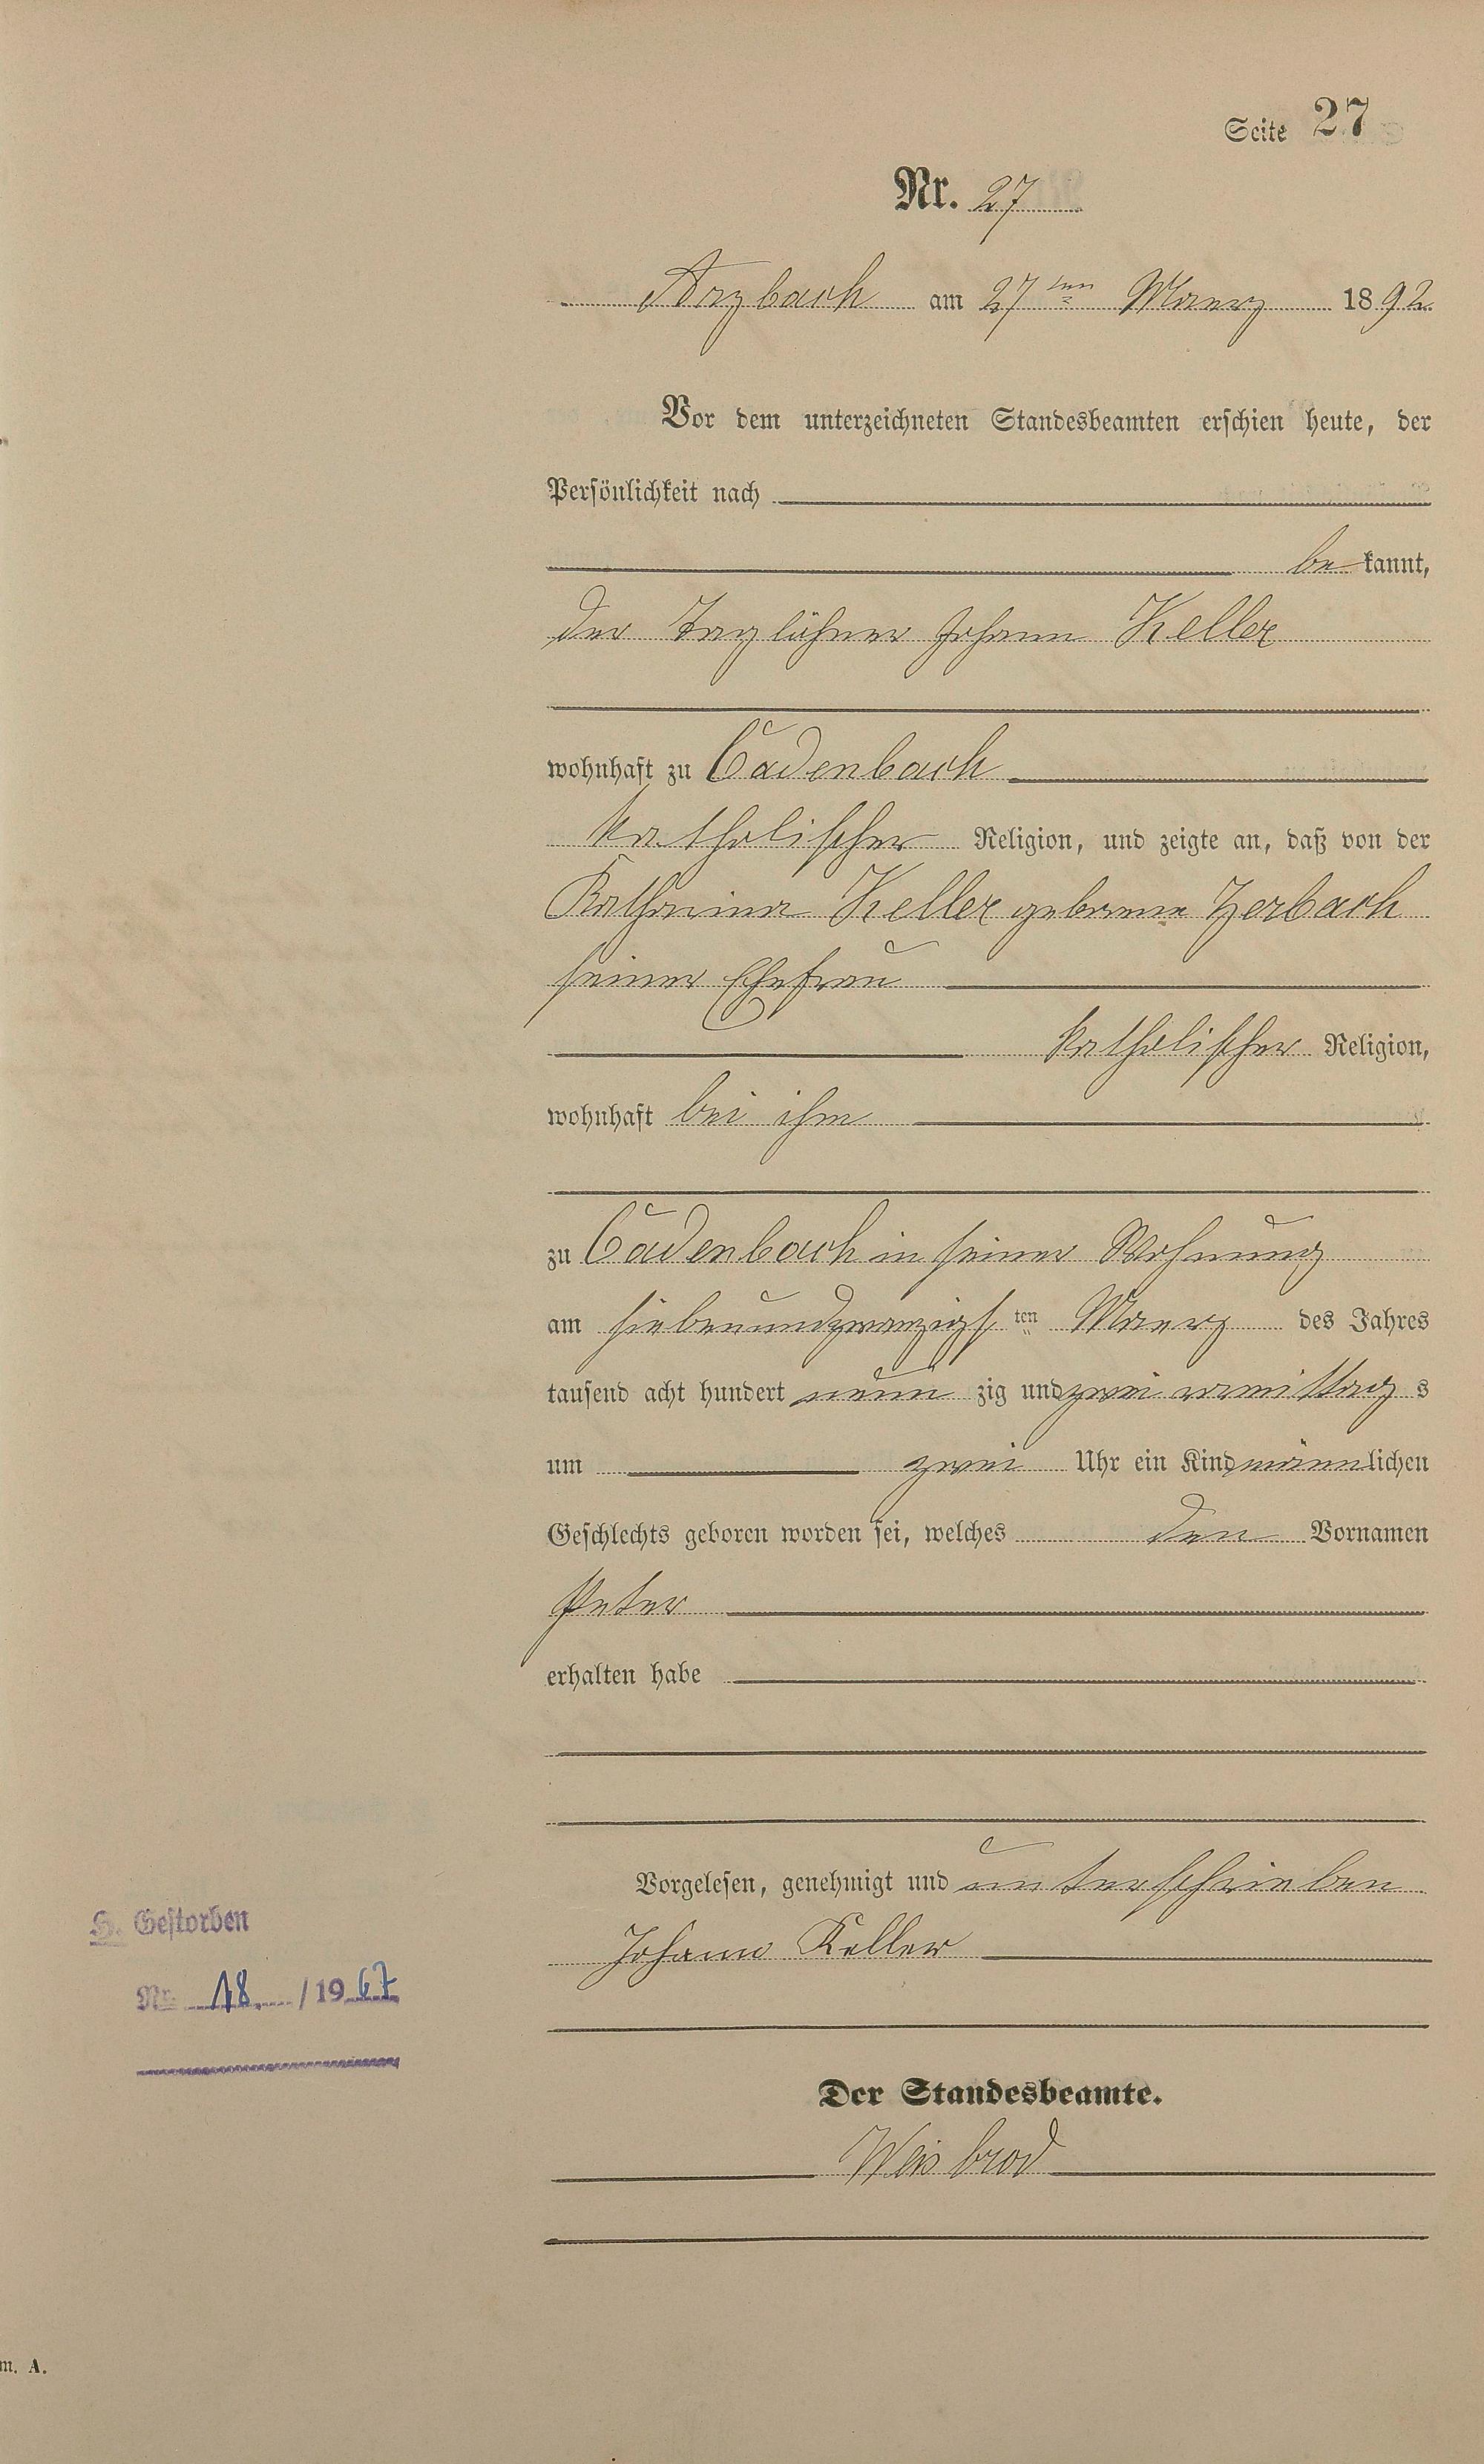 Seite 27
Nr. 27
Arzbach am 27ten Maerz 1892.
Vor dem unterzeichneten Standesbeamten erschien heute, der
Persönlichkeit nach
be kannt,
der Taglöhner Johann Keller
wohnhaft zu Cadenbach
katholischer Religion, und zeigte an, daß von der
Katharina Keller geborene Zerbach
seiner Ehefrau
katholischer Religion,
wohnhaft bei ihm
zu Cadenbach in seiner Wohnung
am siebenundzwanzigsten Maerz des Jahres
tausend acht hundert neun zig und zwei vormittag s
um zwei Uhr ein Kind männlichen
Geschlechts geboren worden sei, welches den Vornamen
Peter
erhalten habe
Vorgelesen, genehmigt und unterschrieben
Johann Keller
H. Gestorben
Nr. 18. / 1967
Der Standesbeamte.
Weisbrod
m. A.